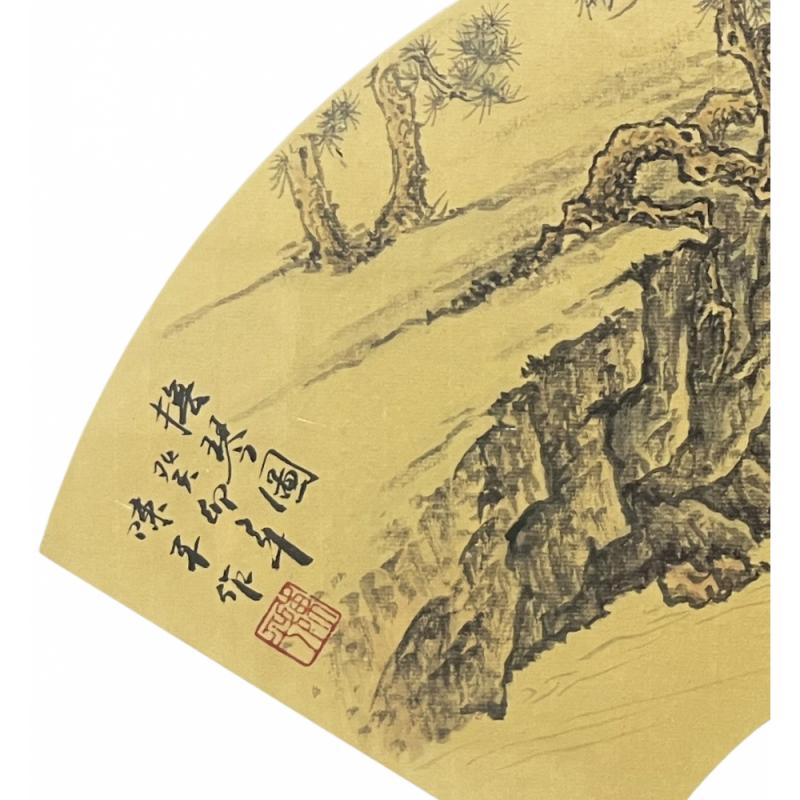 撫琴圖
癸卯年
陳平作